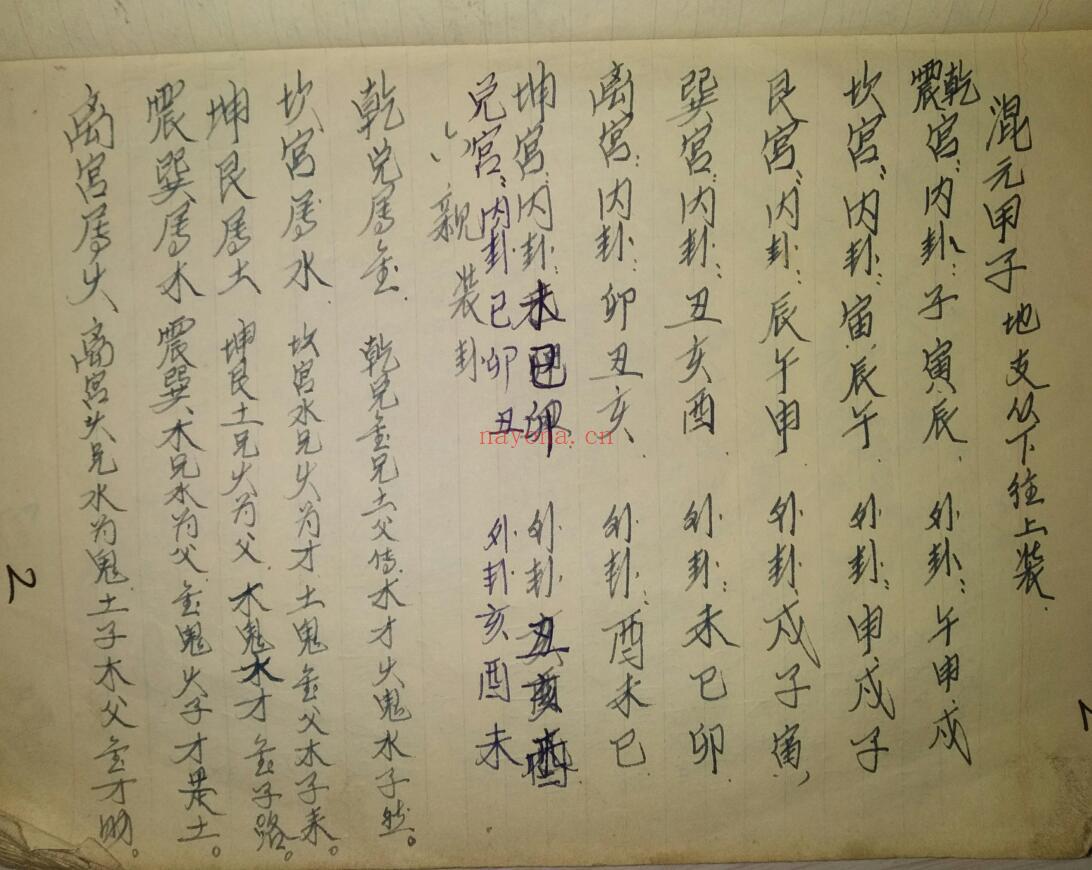 混元甲子 地支从下往上装.
乾
震宫:内卦:子寅辰. 外卦:午申戍
坎宫:内卦:寅.辰午. 外卦:申戍子
艮宫:内卦:辰午申. 外卦:戍子寅,
巽宫:内卦:丑亥酉 外卦:未巳卯
离宫:内卦:卯丑亥. 外卦:酉未巳.
坤宫:内卦:未巳卯 外卦:丑亥酉
兑宫:内卦巳卯丑 外卦亥酉未
六亲装卦
乾兑属金. 乾兑金兄土父传.木才火鬼水子然。
坎宫属水. 坎宫水兄火为才 土鬼金父木子来。
坤艮属土 坤艮土兄火为父. 木鬼水才金子路。
震巽属木 震巽木兄水为父. 金鬼火子才是土。
离宫属火. 离宫火兄水为鬼 土子木父金才助。
2
nayona.cn